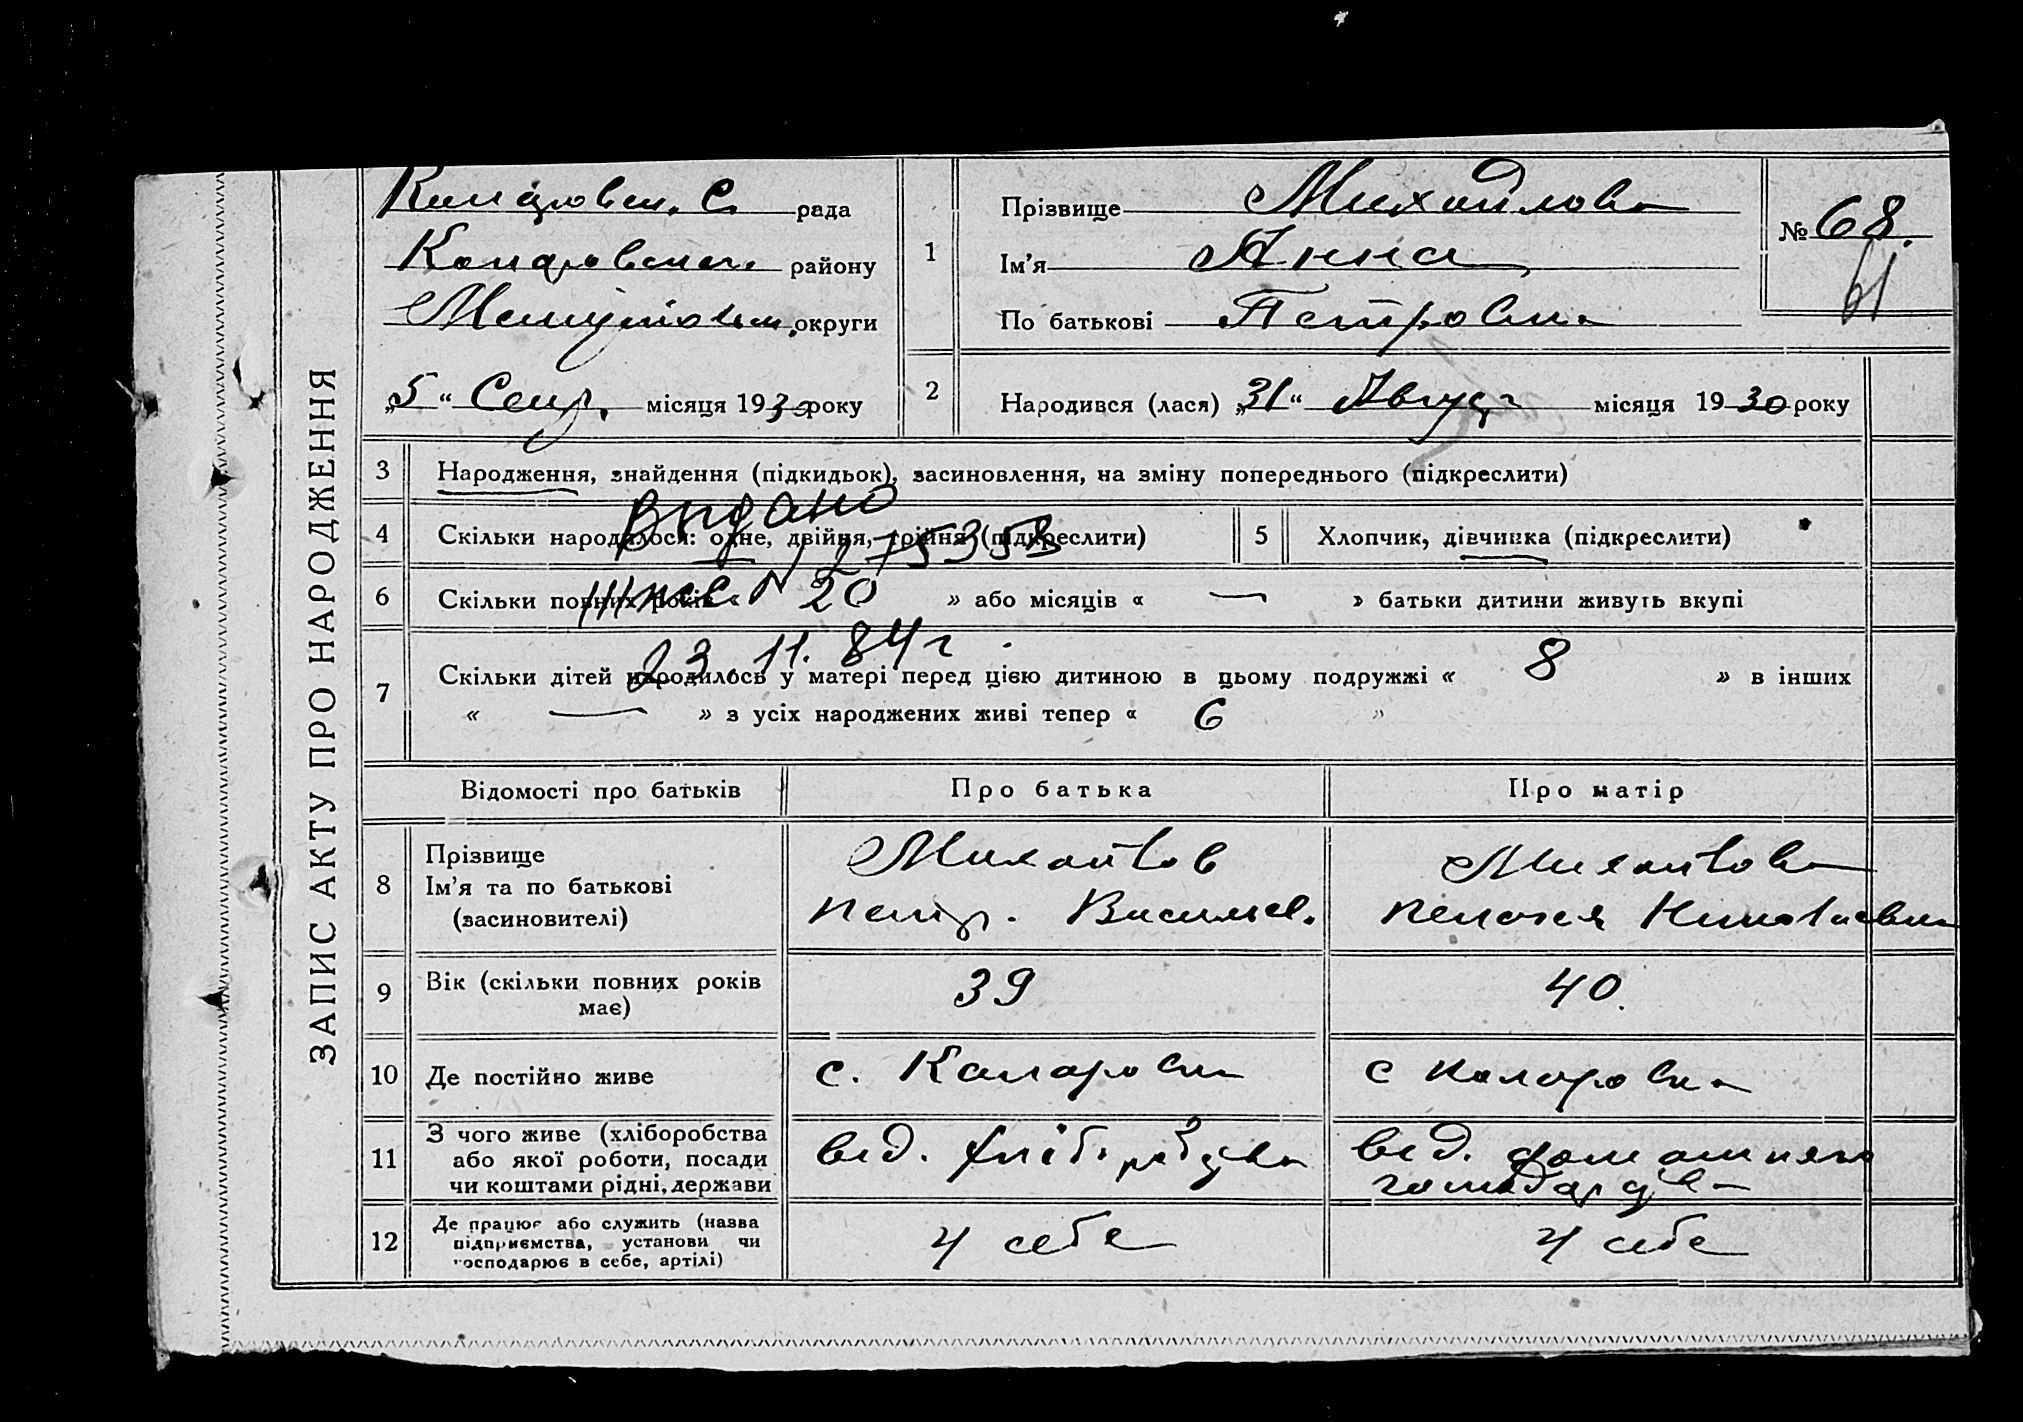 ЗАПИС АКТУ ПРО НАРОДЖЕННЯ
С. рада
району
округи
„5“ Сент. місяця 1930 року
1
Прізвище Михайлова
Ім’я Анна
По батькові Петровна
№ 68.
61
2
Народився (лася) „31“ Август місяця 1930 року
3 Народження, знайдення (підкидьок), засиновлення, на зміну попереднього (підкреслити)
Выдано
4 Скільки народилося: одне, двійня, трійня (підкреслити) 5 Хлопчик, дівчинка (підкреслити)
III жс N 275358
6 Скільки повних років « 20 » або місяців « — » батьки дитини живуть вкупі
23.11.84г.
7 Скільки дітей народилось у матері перед цією дитиною в цьому подружжі « 8 » в інших
« — » з усіх народжених живі тепер « 6 »
Відомості про батьків Про батька Про матір
8 Прізвище
Ім’я та по батькові
(засиновителі)
Михайлов
Петр. Васильев.
Михайлова
Пелагея Николаевна
9 Вік (скільки повних років має) 39 40.
10 Де постійно живе с. с
11 З чого живе (хліборобства
або якої роботи, посади
чи коштами рідні, держави
від. хліборобства
від. домашнего
господарства
12 Де працює або служить (назва
підприємства, установи чи
господарює в себе, артілі)
У себе У себе